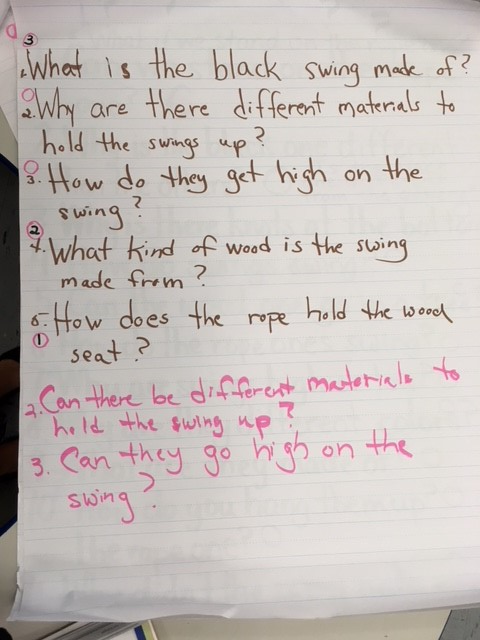 ③
1. What is the black swing made of?
2. Why are there different materials to
hold the swings up?
3. How do they get high on the
swing?
②
4. What kind of wood is the swing
made from?
5. How does the rope hold the wood
① seat?
2. Can there be different materials to
hold the swing up?
3. Can they go high on the
swing?